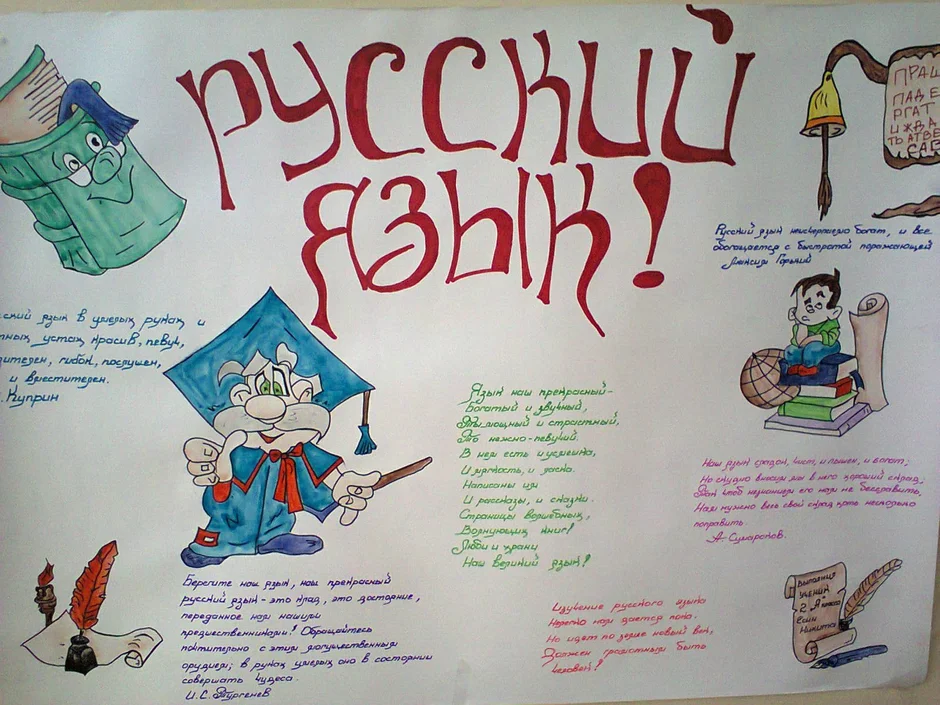 РУССКИЙ
ЯЗЫК!
ПРАШ
ПАД Е
РГАТ
И ЖДА
ТЬ АТВЕ
Русский язык неисчерпаемо богат, и все
обогащается с быстротой поражающей
Максим Горький
ский язык в умелых руках и
тных устах красив, певуч,
зителен, гибок, послушен,
и вместителен.
Куприн
Язык наш прекрасный-
Богатый и звучный,
То мощный и страстный,
То нежно-певучий.
В нем есть и усмешка,
И мягкость, и ласка.
Написаны им
И рассказы, и сказки.
Страницы волшебных,
Волнующих книг!
Люби и храни
Наш великий язык!
Наш язык сладок, чист, и пышен, и богат;
Но скудно вносим мы в него хороший склад;
Так чтоб незнанием его нам не бесславить,
Нам нужно весь свой склад хоть несколько
поправить
А. Сумароков.
Берегите наш язык, наш прекрасный
русский язык - это клад, это достояние,
переданное нам нашими
предшественниками! Обращайтесь
почтительно с этим могущественным
орудием; в руках умелых оно в состоянии
совершать чудеса.
И.С. Тургенев
Изучение русского языка
Нелегко нам дается пока.
Но идет по земле новый век,
Должен грамотным быть
человек!
Выполнил
ученик
2 "А" класса
Есин
Никита